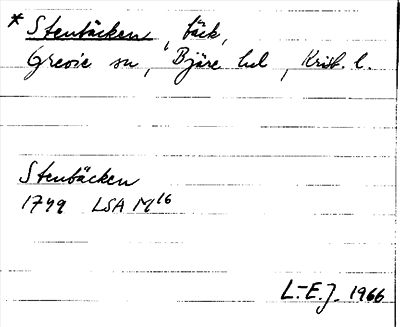 * Stenbäcken, bäck,
Grevie sn, Bjäre hd, Krist. l.
Stenbäcken
1799 LSA M16
L.-E.J. 1966